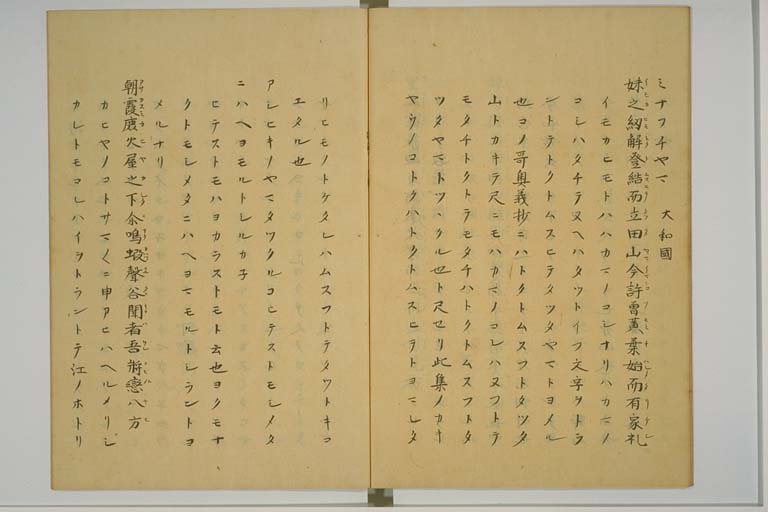 ミナフチヤマ 大和國
妹之紐解登結而立田山今許曽黄葉始而有家礼
イモカヒモトハハカマノコシナリハカマノ
コシハタチテ又ヘハタツトイフ文字ヲトラ
ントテトクトムスヒテタツタヤマトヨメル
也コノ哥奥義抄ニハトクトムスフトタツタ
山トカキテ尺ニモハカマノコレハ又フトテ
モタチトクトラモタチハトクトムスフトタ
ツタヤマトツヽクル也ト尺セリ此集ノカキ
ヤウノコトクハトクトムスヒテトヨマレタ
リヒモノトケタレハムスフトテタツトキコ
エタル也
アシヒキノヤマタツクルコヒテストモシメタ
ニハヘヨモルトシルカ子
ヒテストモハヨカラストモト云也ヨクモナ
クトモシメタニハヘヨマモルトシラントヨ
メルナリ
朝霞鹿火屋之下尓鳴蝦聲谷聞者吾将戀八方
カヒヤノコトサマ〳〵ニ申アヒハヘルメリシ
カレトモコレハイヲトラントテ江ノホトリ